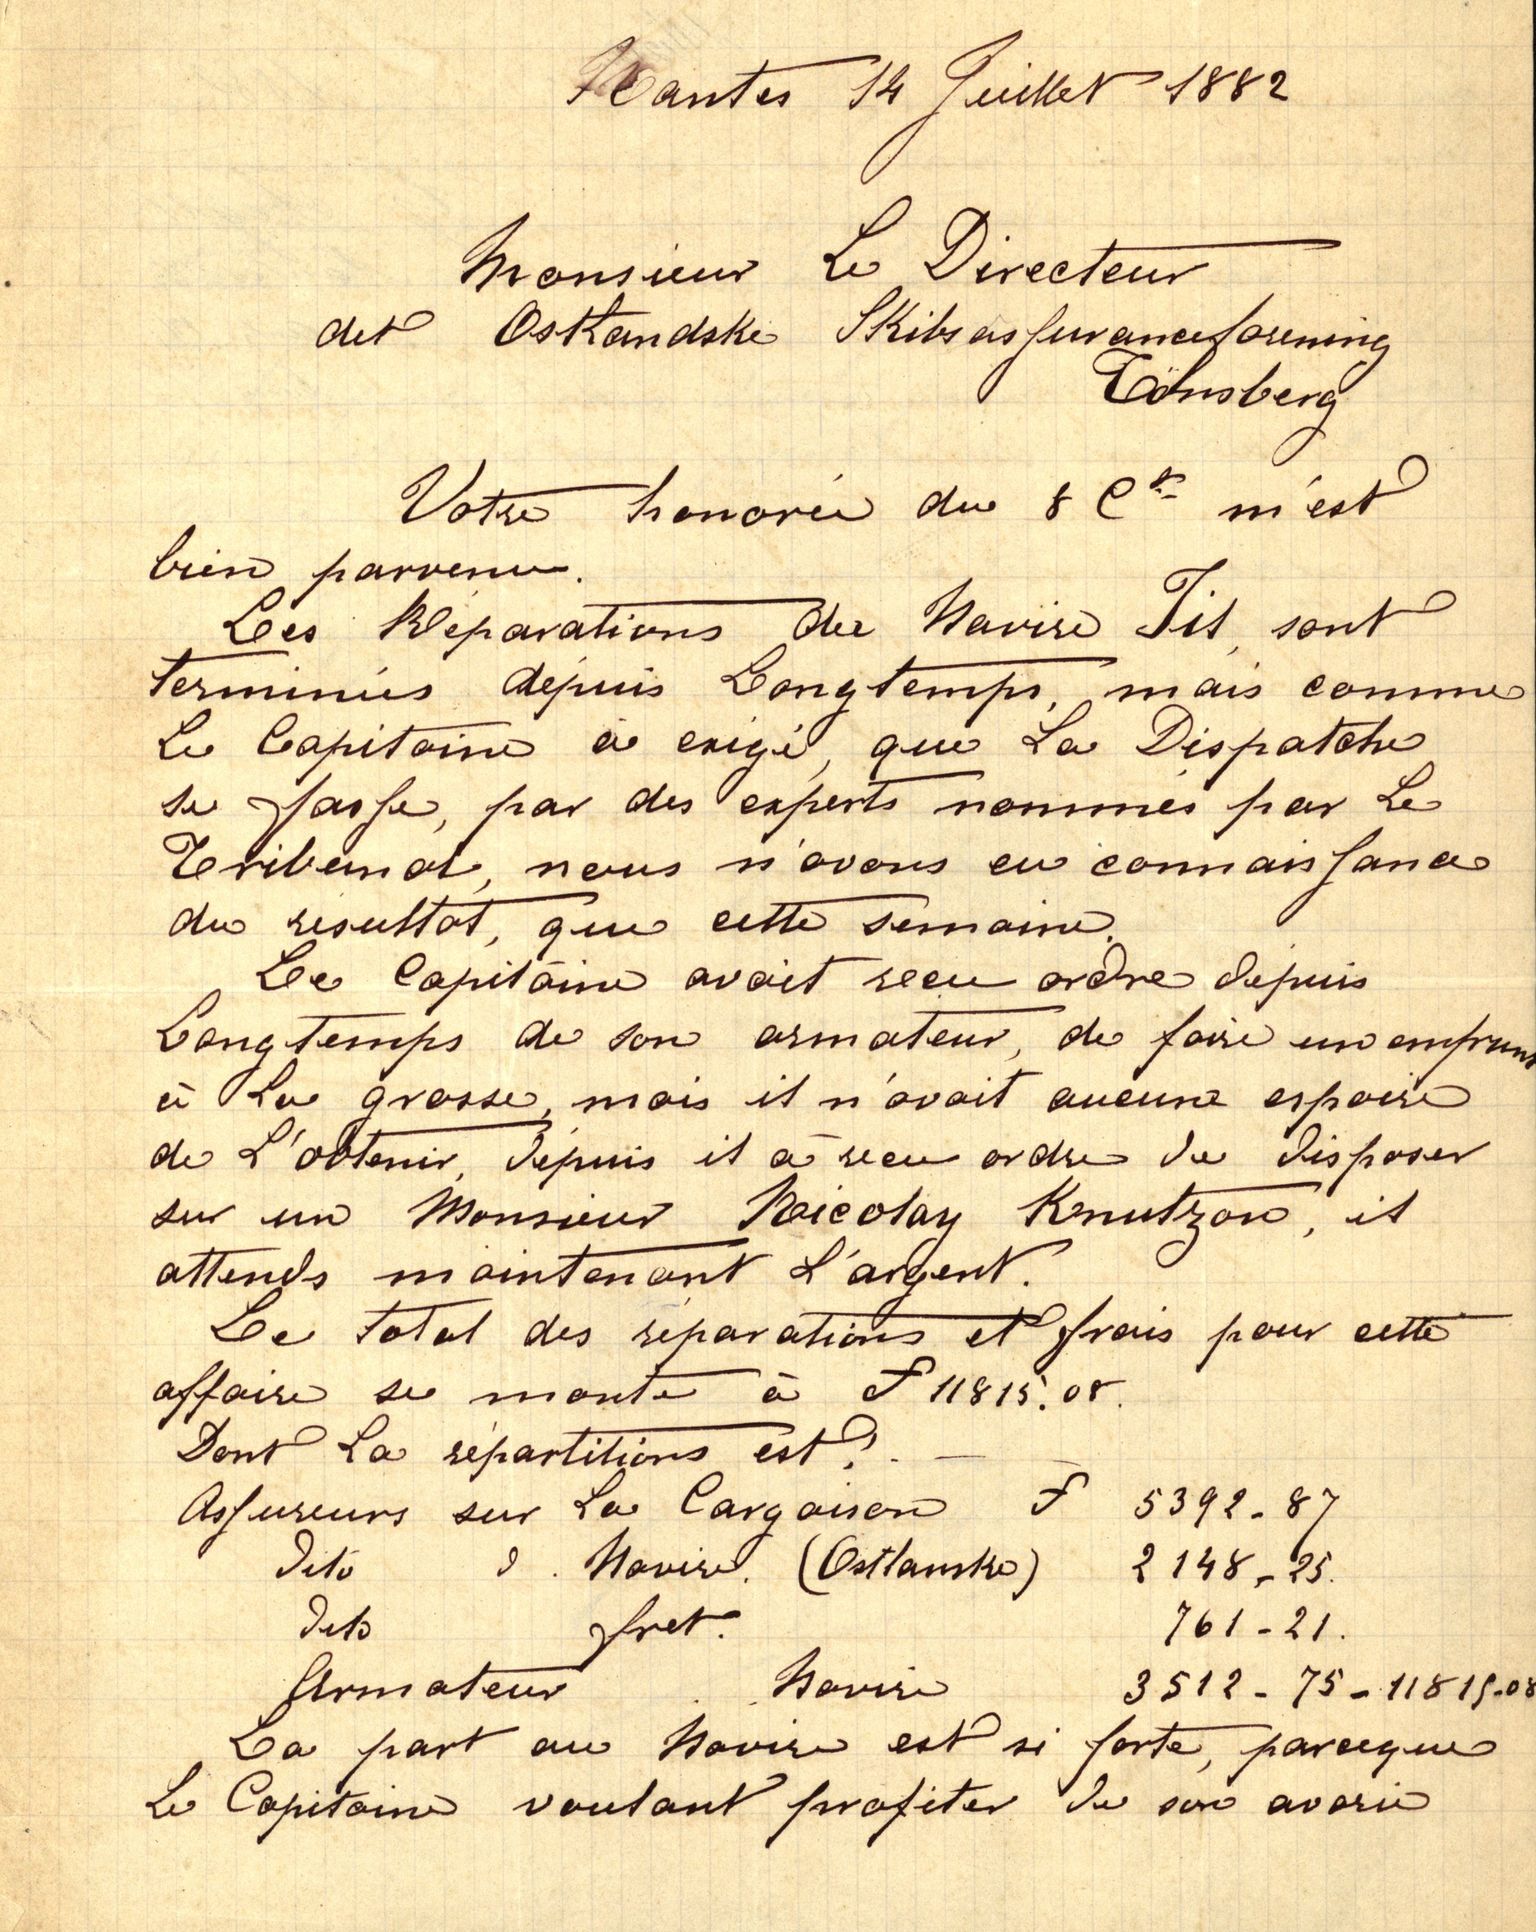 Nantes 14 Juillet 1882
Monsieur Le Directeur
det Ostlandske Skibsassuranceforening
Tönsberg
Votre honorée du 8 Ct m'est
bien parvenu.
Les Réparations du Navire Tit, sont
terminées dépuis Longtemps, mais comme
Le Capitaine à exigé, que La Dispatche
se fasse, par des experts nommés par Le
Tribunal, nous n'avons eu connaissance
du resultat, que cette semaine.
Le Capitaine avait recu ordre depuis
Longtemps de son armateur, de faire un emprunt
à La grosse, mais il n'avait aucune espoire
de L'obtenir, dépuis il à recu ordre de disposer
sur un Monsieur Nicolay Knutzon, il
attends maintenant L'argent.
Le total des réparations et frais pour cette
affaire se monte à F 11815.08.
Dont La répartitions est: —
Assureurs sur La Cargaison F 5392-87
dito d. Navire. (Ostlanske) 2148-25.
dito fret. 761-21.
Armateur Navire 3512-75-11815-08
La part au Navire est si forte, parceque
Le Capitaine voulant profiter de son avarie